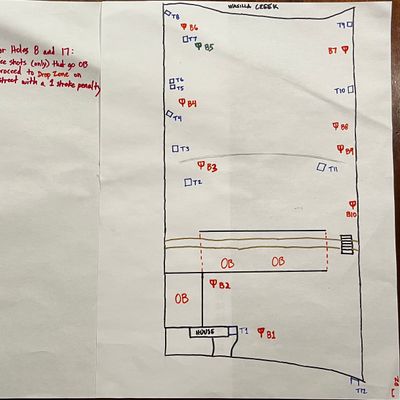 WASILLA CREEK
T8
B6
T7
B5
T9
B7
or Holes 8 and 17:
ee shots (only) that go OB
roceed to Drop Zone on
street with a 1 stroke penalty
T6
T5
T10
B4
T4
B8
T3
B9
B3
T11
T2
B10
OB
OB
B2
OB
HOUSE
T1
B1
T12